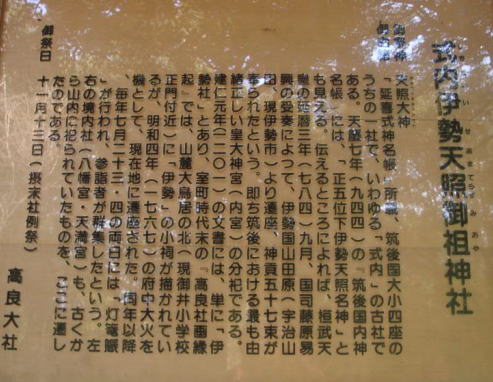 式内伊勢天照御祖神社
いせあまてらすみおや
御祭神 天照大神
御由緒 『延喜式神名帳』所載、筑後国大小四座の
うちの一社で、いわゆる「式内」の古社で
ある。天慶七年(九四四)の『筑後国内神
名帳』には、「正五位下伊勢天照名神」と
も見える。伝えるところによれば、桓武天
皇の延暦三年(七八四)九月、国司藤原易
興の受奏によつて、伊勢国山田原(宇治山
田、現伊勢市)より遷座、神貢五十七束が
奉られたという。即ち筑後における最も由
緒正しい皇大神宮(内宮)の分祀である。
建仁元年(一二〇一)の文書には、単に「伊
勢社」とあり、室町時代末の『高良社画縁
起』では、山麓大鳥居の北(現御井小学校
正門付近)に「伊勢」の小祠が描かれてい
るが、明和四年(一七六七)の府中大火を
機として、現在地に遷座された。同年以降
、毎年七月二十三・四の両日には「灯篭賑
」が行われ、参詣者が群集したという。左
右の境内社(八幡宮・天満宮)も、古くか
ら山内に祀られていたものを、ここに遷し
たのである。
御祭日 十一月十三日(摂末社例祭)
高良大社